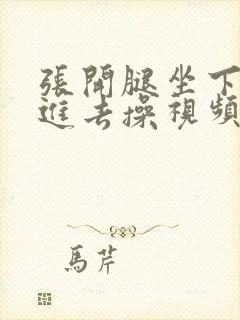 張開腿坐下
進去操視頻
馬芹